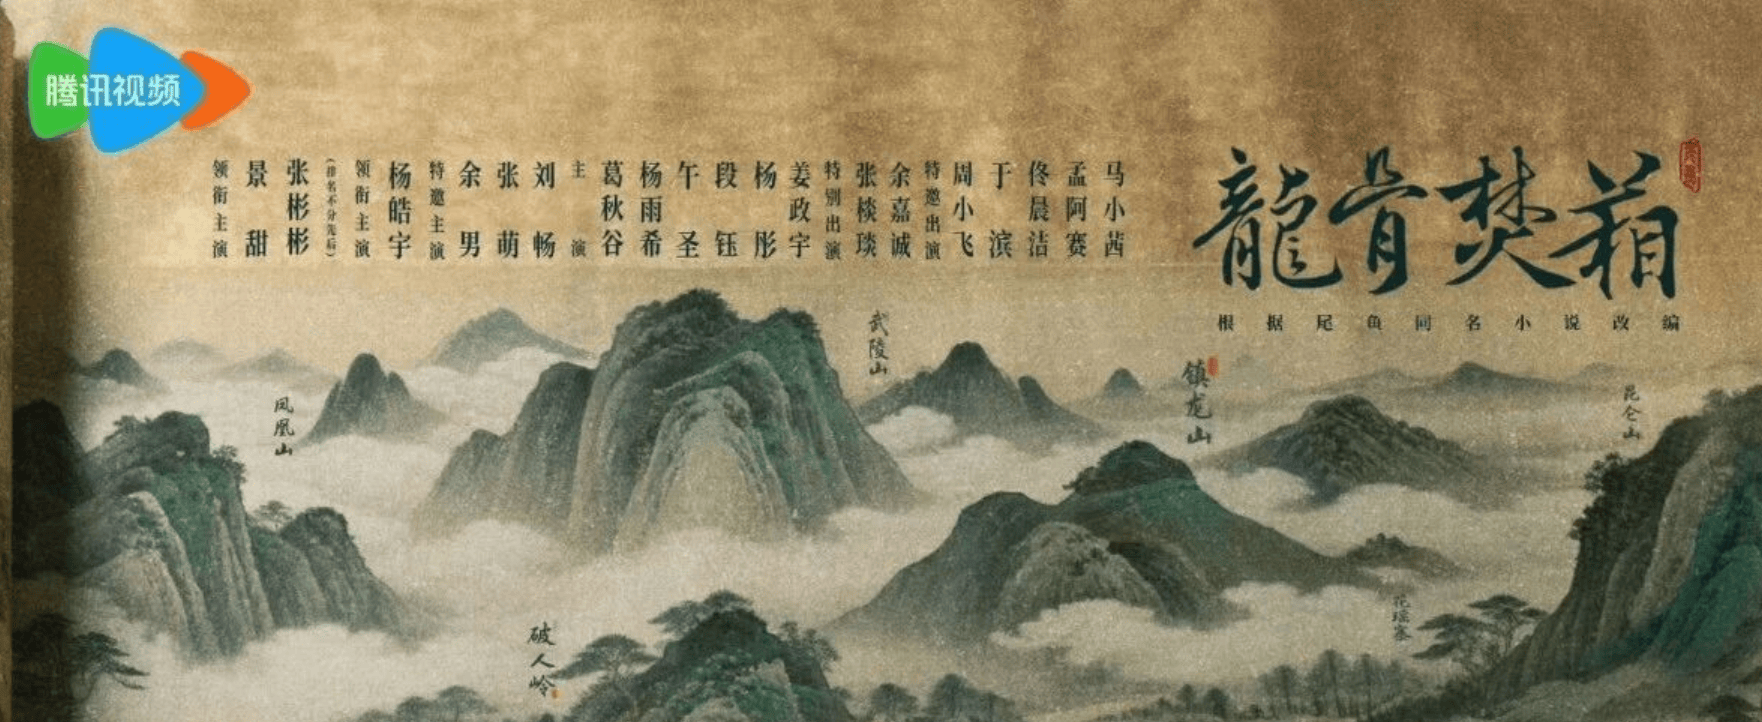 腾讯视频
领衔主演
景甜
张彬彬
(排名不分先后)
领衔主演
杨皓宇
特邀主演
余男
张萌
刘畅
主演
葛秋谷
杨雨希
午圣
段钰
杨彤
姜政宇
特别出演
张棪琰
余嘉诚
特邀出演
周小飞
于滨
佟晨洁
孟阿赛
马小茜
龍骨焚葙
根据尾鱼同名小说改编
凤凰山
武陵山
镇龙山
昆仑山
破人岭
花瑶寨